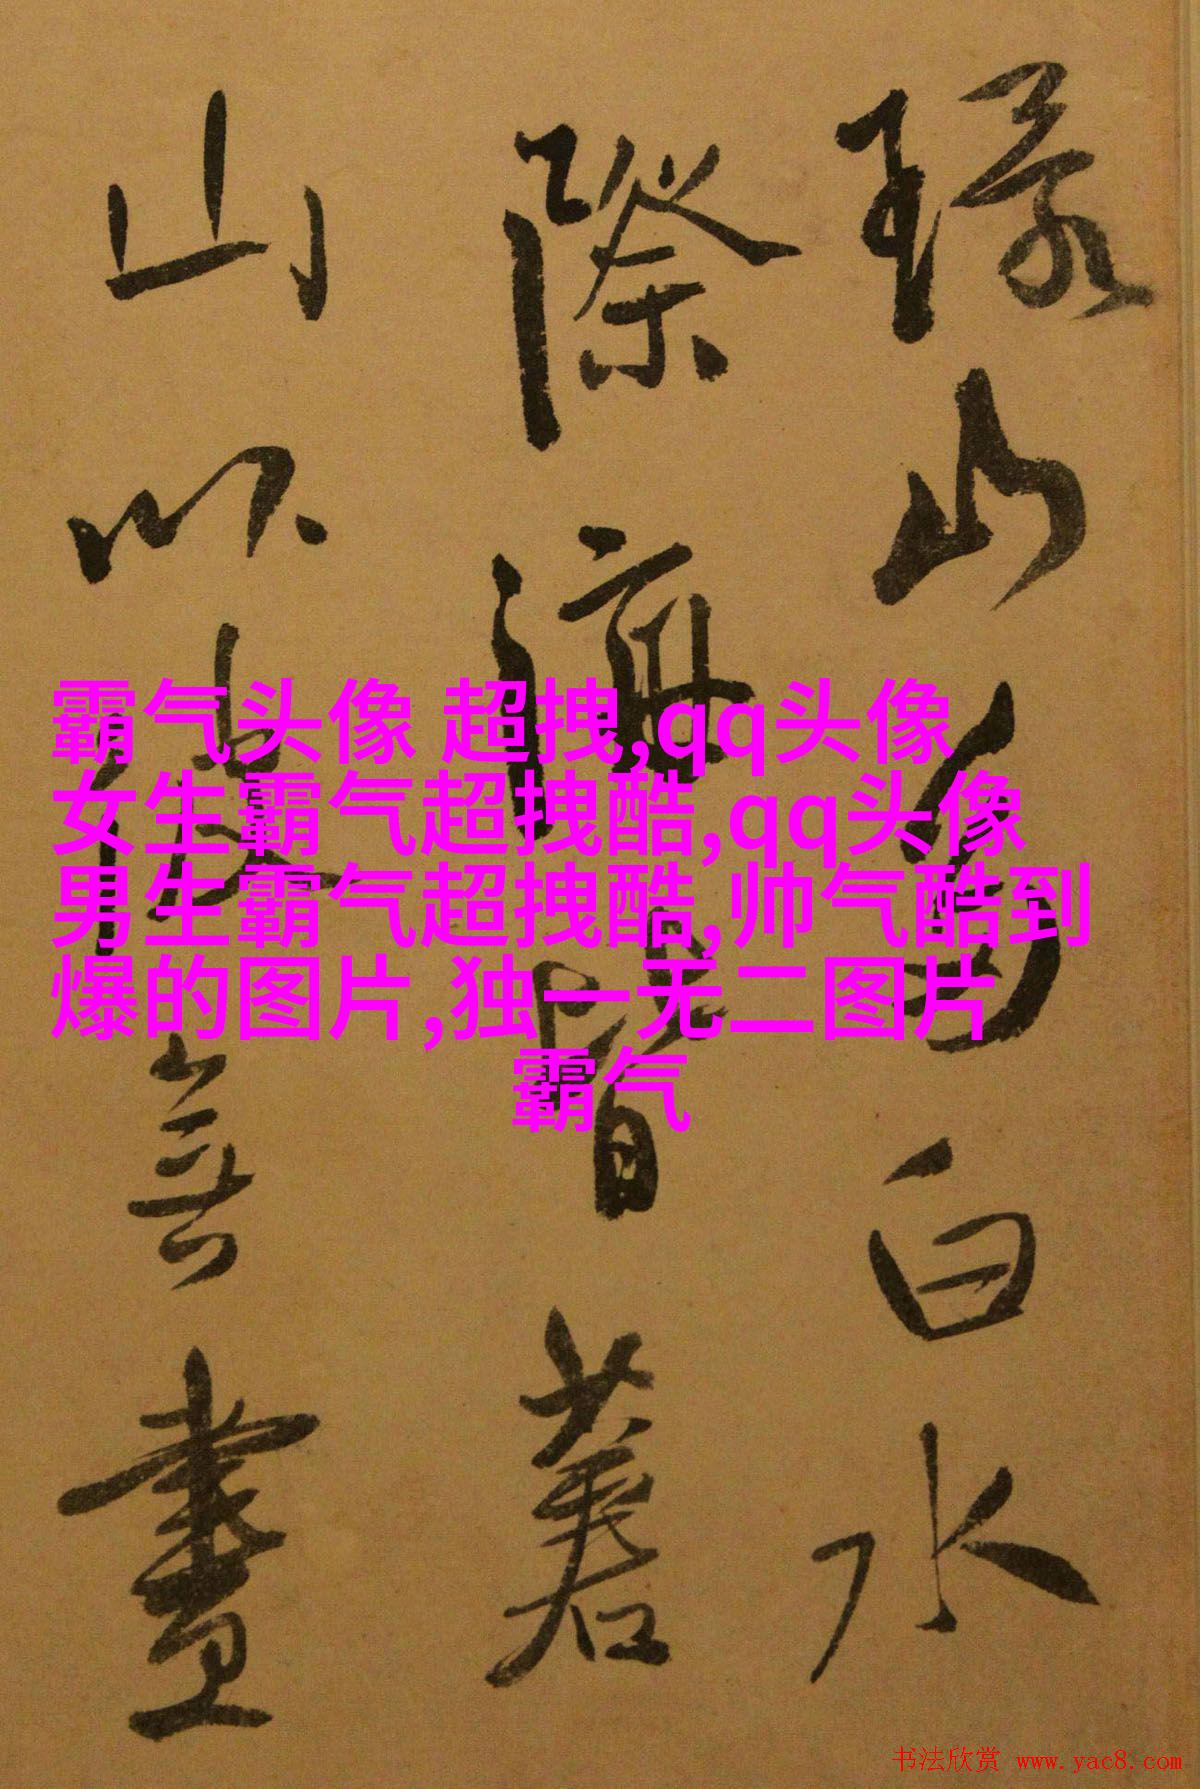 環山多白水
際海皆蒼
山以故無畫
霸气头像 超拽,qq头像
女生霸气超拽酷,qq头像
男生霸气超拽酷,帅气酷到
爆的图片,独一无二图片
霸气
书法欣赏 www.yac8.com